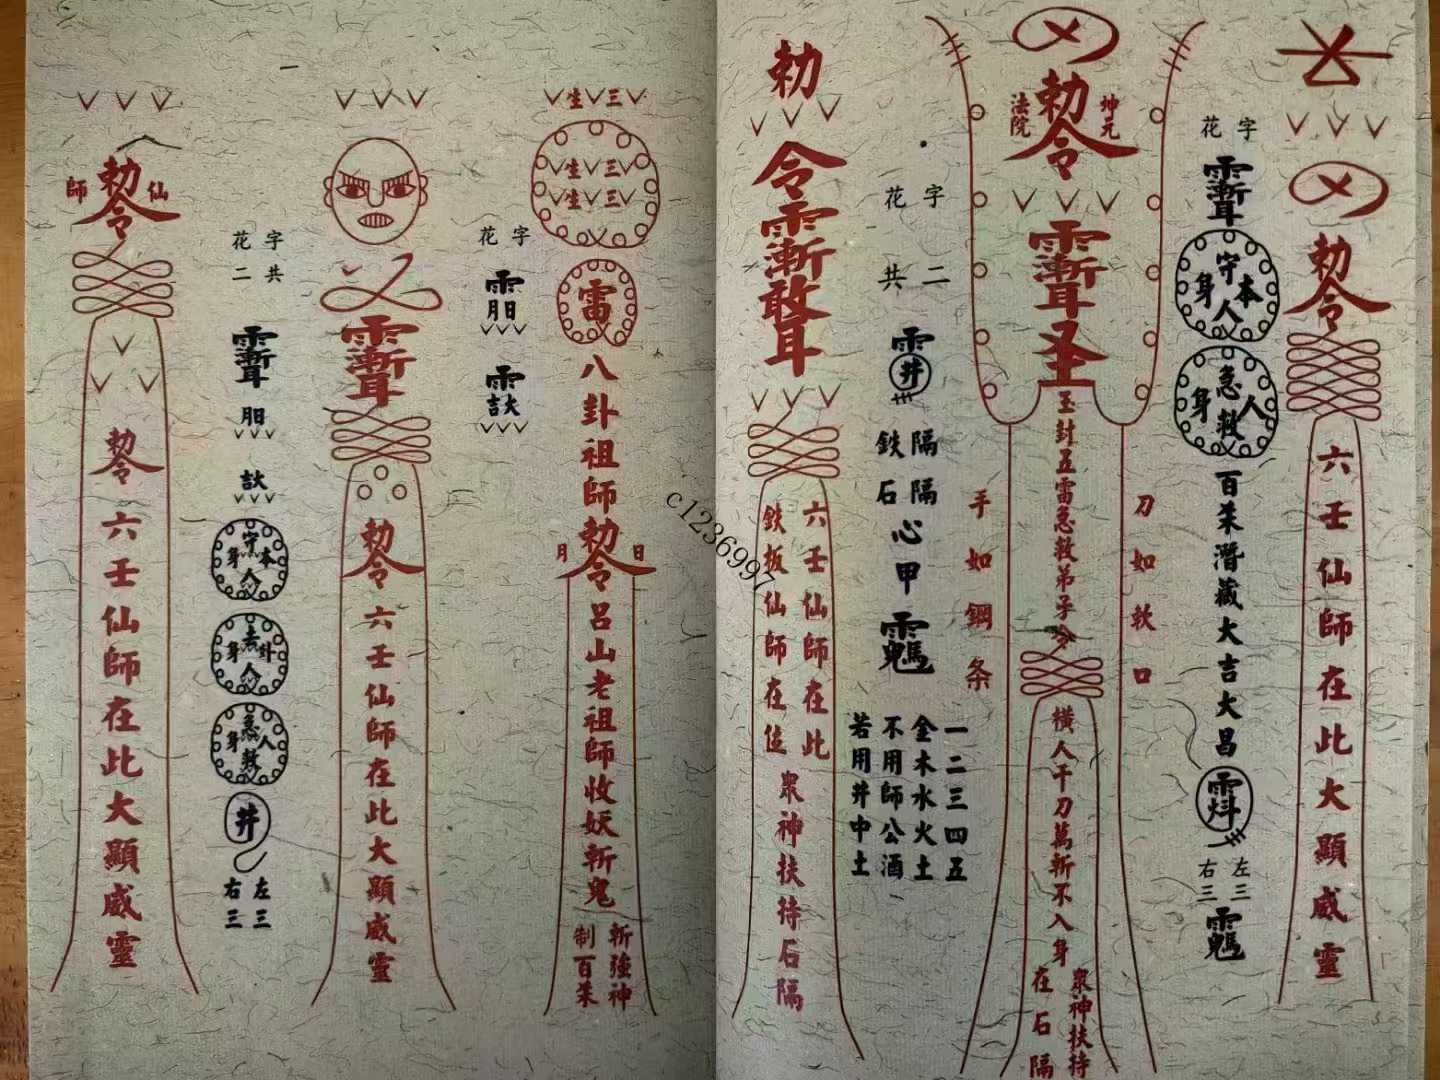 勅令
六壬仙師在此大顯威靈
字花
左三
右三
勅
令
坤元
法院
勅令
玉封五雷急救弟子令
橫人千刀萬斬不入身
眾神扶持
在石隔
刀如軟口
手如鋼条
本人守身
人急救身
百朱潛藏大吉大昌
字花
二共
井
隔隔
鉄石
心甲
一二三四五
金木水火土
不用師公酒
若用井中土
六壬仙師在此
鉄板仙師在位
眾神扶持石隔
三生
三生
三生
雷
八卦祖師
勅令
日
月
呂山老祖師收妖斬鬼
斬強神
制百朱
字花
勅令
六壬仙師在此大顯威靈
字花
共二
本人守身
卦人去身
人急救身
井
左三
右三
仙師
勅令
勅令
六壬仙師在此大顯威靈
c1236997